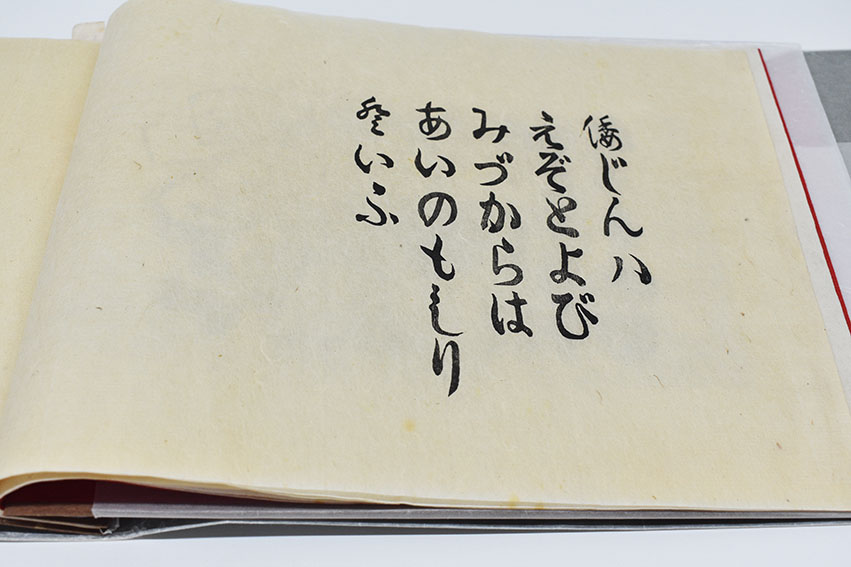 倭じんハ
えぞとよび
みづからは
あいのもしり
登いふ